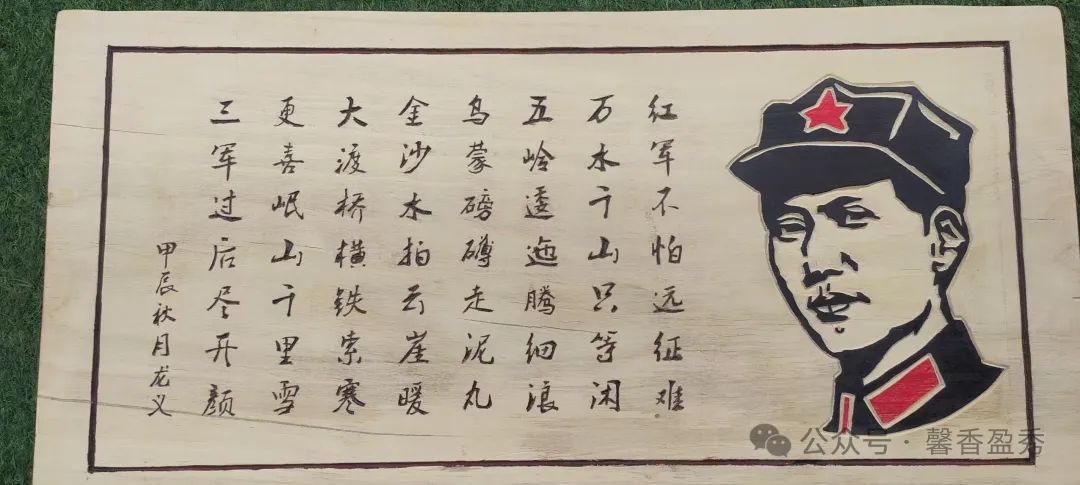 红军不怕远征难
万水千山只等闲
五岭逶迤腾细浪
乌蒙磅礴走泥丸
金沙水拍云崖暖
大渡桥横铁索寒
更喜岷山千里雪
三军过后尽开颜
甲辰秋月龙义
公众号·馨香盈秀